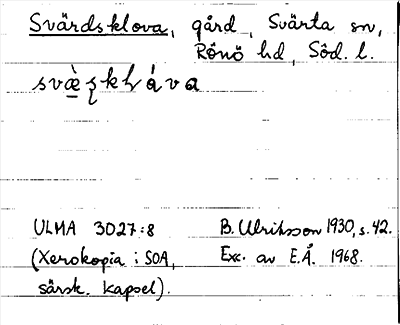 Svärdsklova, gård, Svärta sn,
Rönö hd, Söd. l.
ULMA 3027:8 B. Ulriksson 1930, s. 42.
(Xerokopia i SOA, Exc. av E.Å. 1968.
särsk. kapsel).